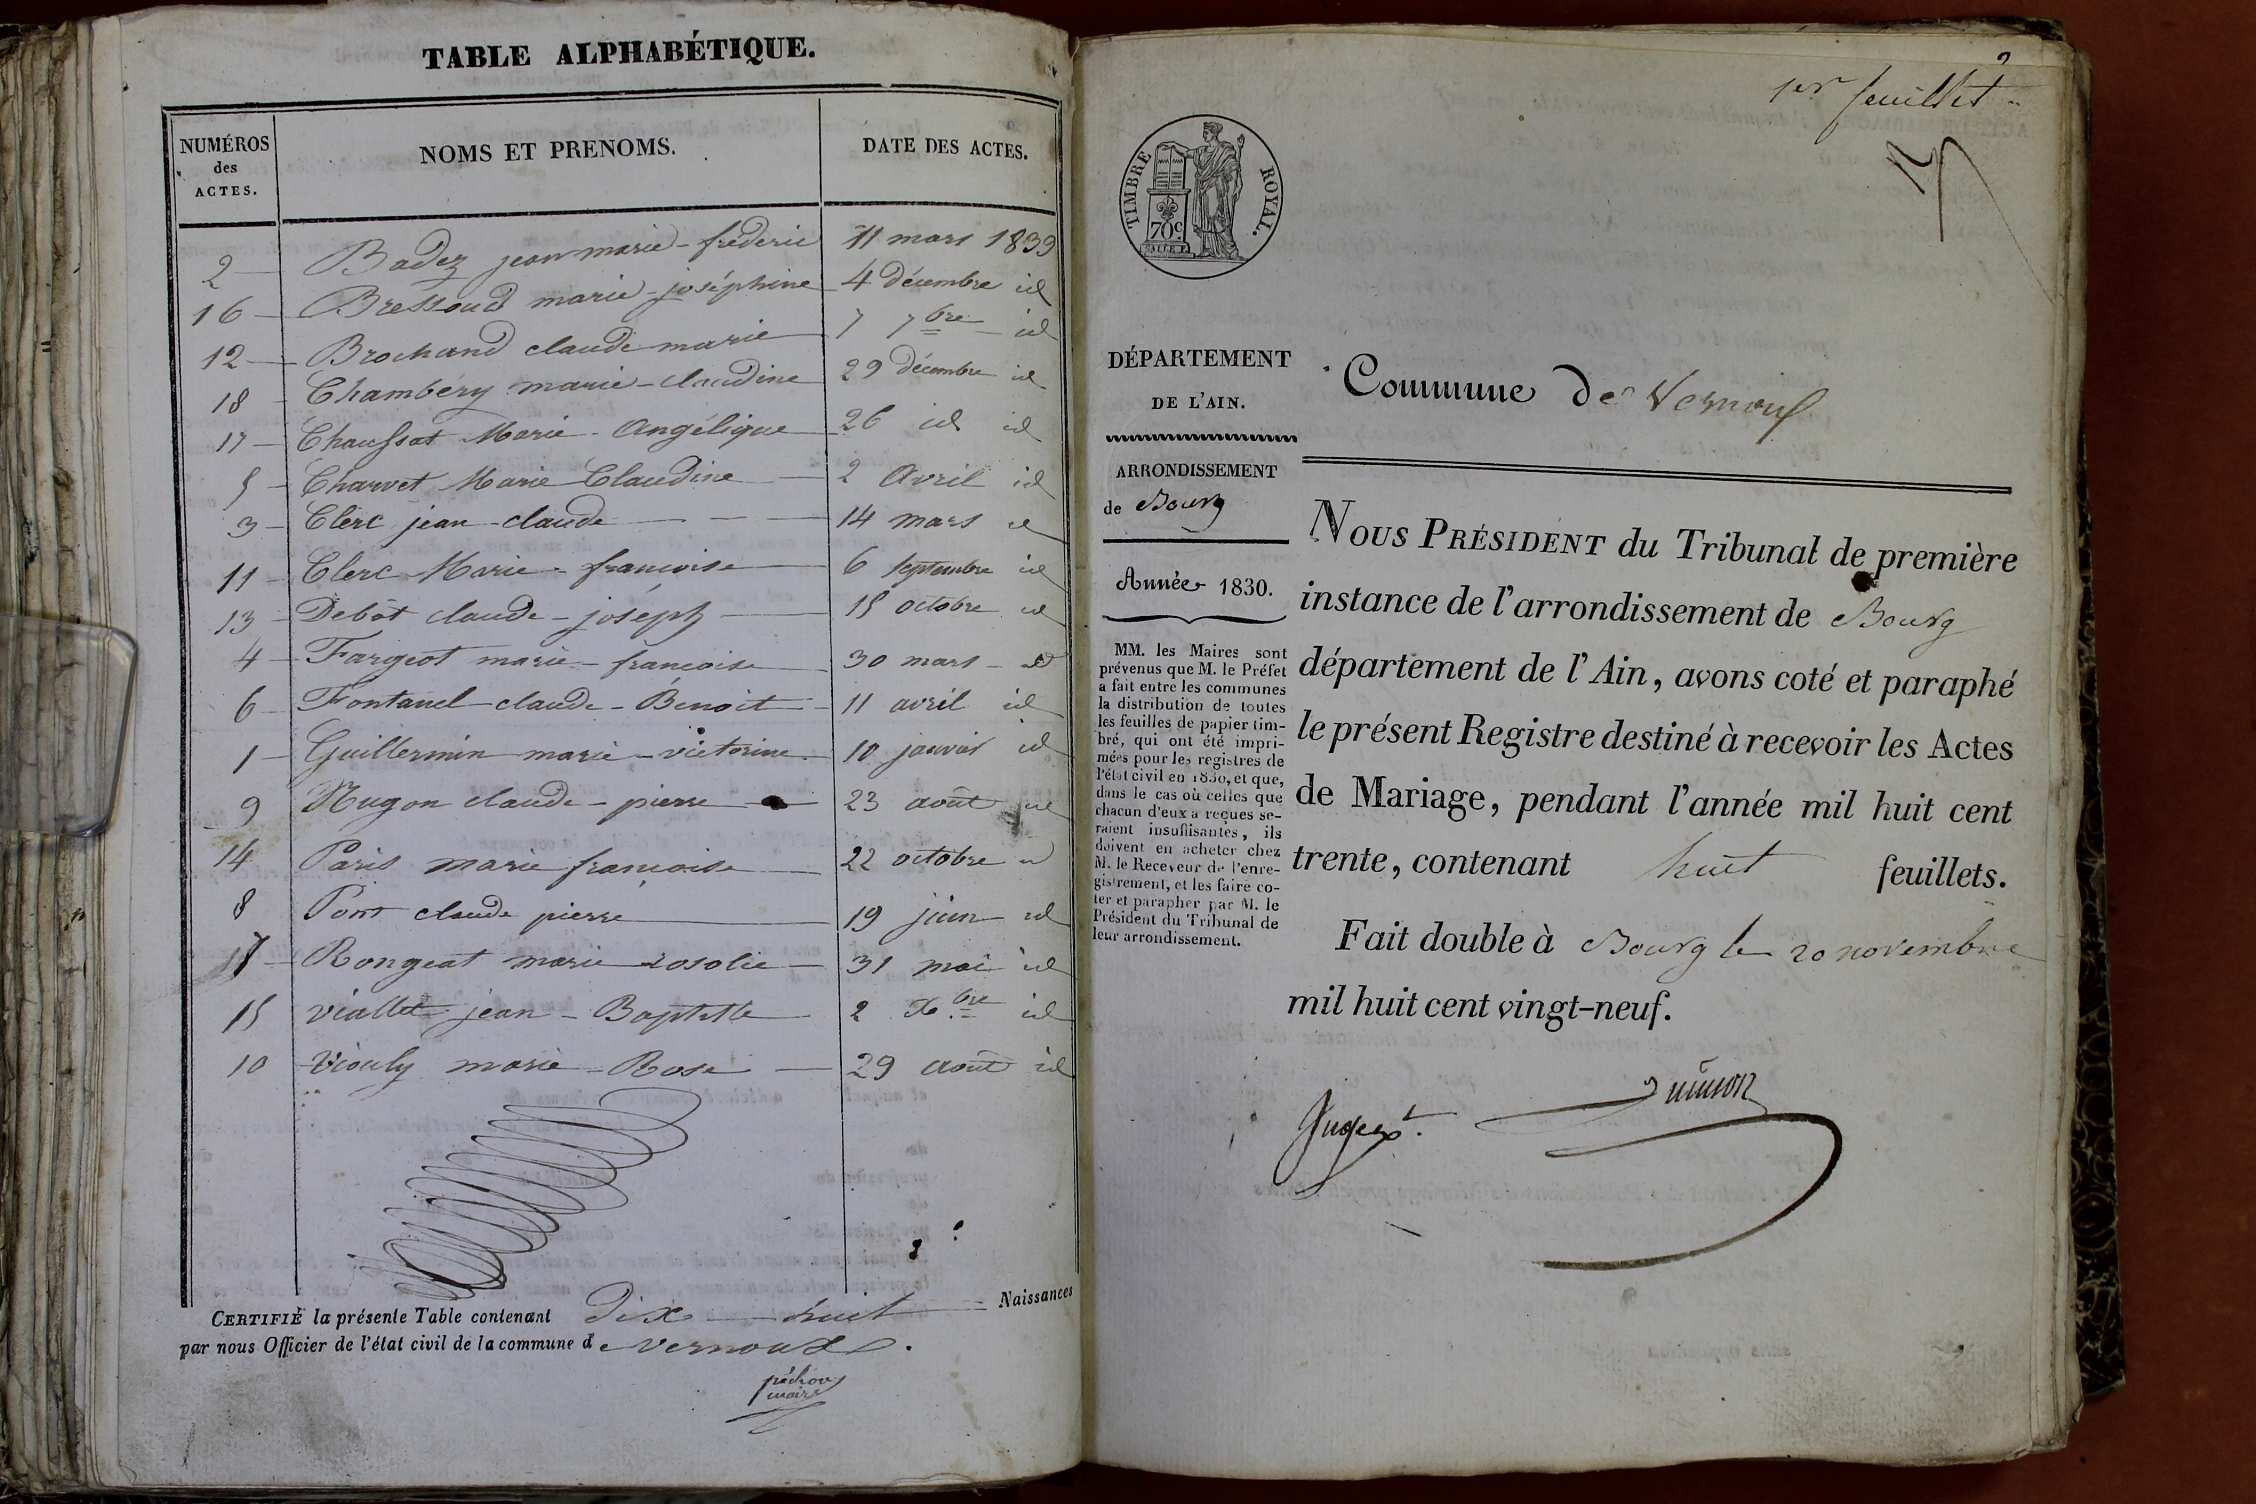 TABLE ALPHABÉTIQUE.
NUMÉROS
des
ACTES.
NOMS ET PRENOMS.
DATE DES ACTES.
2 Badez jean marie - fréderic 11 mars 1839
16 Bressoud marie - joséphine 4 décembre id
12 Brochand claude marie 7 7bre id
18 Chambéry marie - claudine 29 décembre id
17 Chaussat Marie - Angélique 26 id id
5 Charvet Marie Claudine 2 Avril id
3 Clerc jean - claude 14 mars id
11 Clerc Marie - francoise 6 septembre id
13 Debôt claude - joseph 15 octobre id
4 Fargeot marie - francoise 30 mars id
6 Fontanel claude - Benoit 11 avril id
1 Guillermin marie - victorine 10 janvier id
9 Nugon claude - pierre 23 août id
14 Paris marie francoise 22 octobre id
8 Pont claude pierre 19 juin id
Rongeat marie rosolie 31 mai id
15 viallet jean - Baptiste 2 Xbre id
10 Viouly marie - Rose 29 août id
CERTIFIÉ la présente Table contenant dix huit Naissances
par nous Officier de l'état civil de la commune de vernoux.
péchoux
maire
1er feuillet
TIMBRE ROYAL.
70c.
DÉPARTEMENT
DE L'AIN.
ARRONDISSEMENT
de Bourg
Année 1830.
MM. les Maires sont
prévenus que M. le Préfet
a fait entre les communes
la distribution de toutes
les feuilles de papier tim-
bré, qui ont été impri-
mées pour les registres de
l'état civil en 1830, et que,
dans le cas où celles que
chacun d'eux a reçues se-
raient insuffisantes, ils
doivent en acheter chez
M. le Receveur de l'enre-
gistrement, et les faire co-
ter et parapher par M. le
Président du Tribunal de
leur arrondissement.
Commune de Vernoux
NOUS PRÉSIDENT du Tribunal de première
instance de l'arrondissement de Bourg
département de l'Ain, avons coté et paraphé
le présent Registre destiné à recevoir les Actes
de Mariage, pendant l'année mil huit cent
trente, contenant huit feuillets.
Fait double à Bourg le 20 novembre
mil huit cent vingt-neuf.